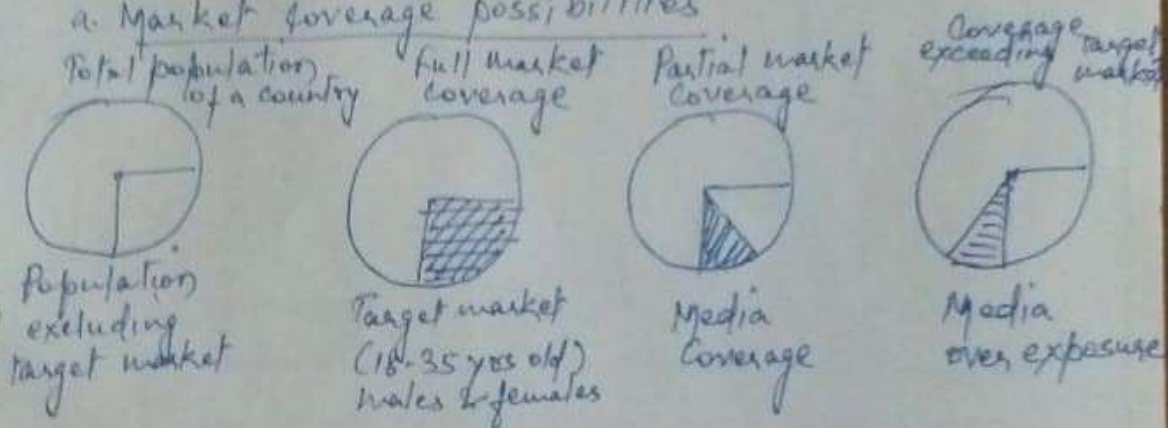 a. Market Coverage possibilities
Total population
of a country
Full market
coverage
Partial market
Coverage
Coverage
exceeding target
market
Population
excluding
target market
Target market
(18-35 yrs old)
males & females
Media
Coverage
Media
over exposure